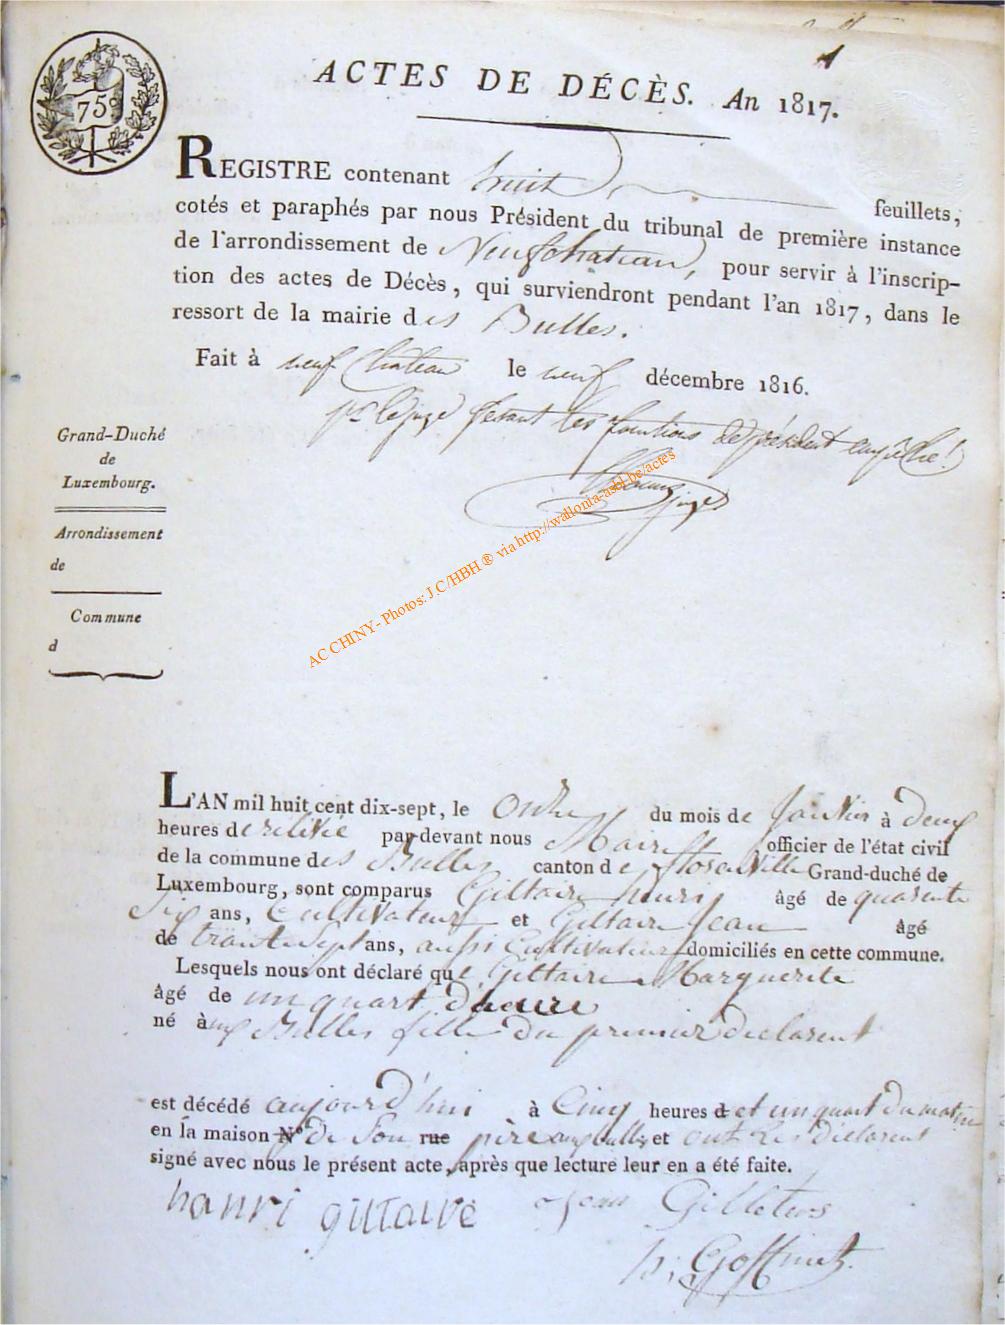 1
75c
ACTES DE DÉCÈS. An 1817.
REGISTRE contenant huit feuillets,
cotés et paraphés par nous Président du tribunal de première instance
de l'arrondissement de Neufchateau, pour servir à l'inscrip-
tion des actes de Décès, qui surviendront pendant l'an 1817, dans le
ressort de la mairie des Bulles.
Fait à neufchateau le neuf décembre 1816.
pr le juge fesant les fonctions de président empêché
juge
Grand-Duché
de
Luxembourg.
Arrondissement
de
Commune
d
AC CHINY - Photos: J.C/HBH ® via http://wallonia-asbl.be/actes
L'AN mil huit cent dix-sept, le Onze du mois de Janvier à deux
heures de relévé par-devant nous Maire officier de l'état civil
de la commune des Bulles canton de florenville Grand-duché de
Luxembourg, sont comparus Giltaire henri âgé de quarente
Six ans, Cultivateur et Giltair Jean âgé
de trante Sept ans, aussi Cultivateur domiciliés en cette commune.
Lesquels nous ont déclaré que Giltaire Marguerite
âgé de un quart dheure
né à aux Bulles fille du premier declarent
est décédé aujourd'hui à Cinq heures d et un quart du matin
en la maison N° de Son rue père aux bulles et ont les déclarent
signé avec nous le présent acte, après que lecture leur en a été faite.
hanri giltaire Jean Gilleters
h: Goffinet.